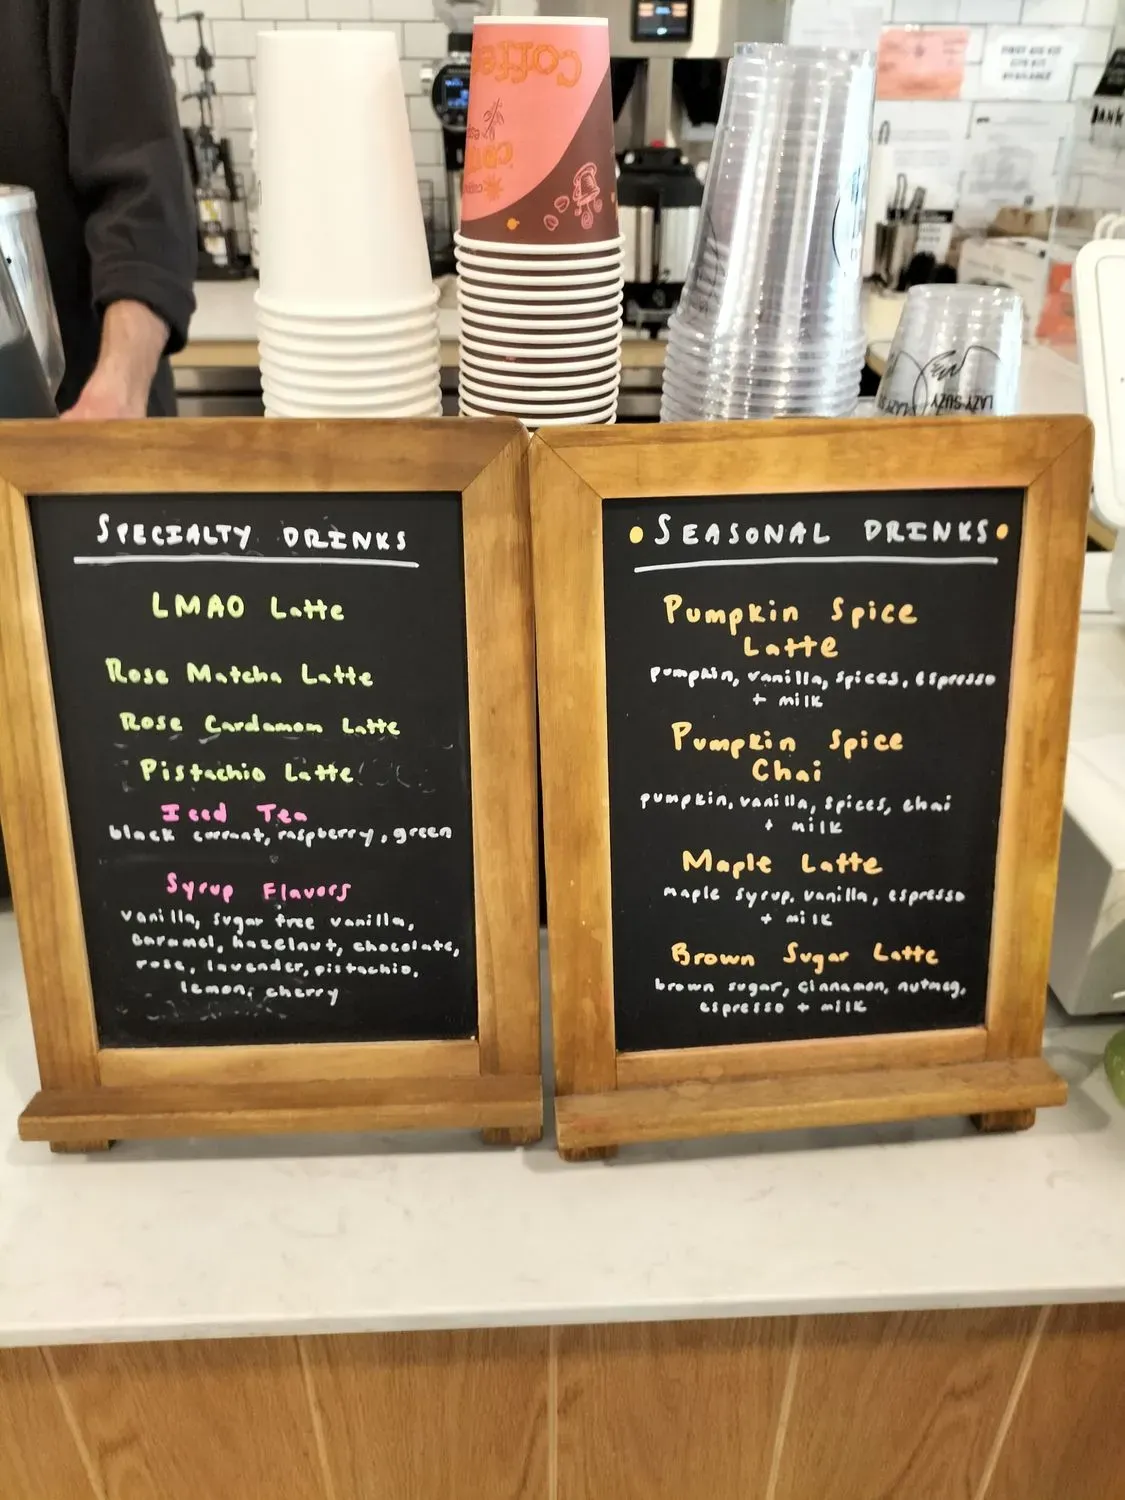 Coffee
FIRST AID KIT
AVAILABLE
LAZY SUZY
SPECIALTY DRINKS
LMAO Latte
Rose Matcha Latte
Rose Cardamom Latte
Pistachio Latte
Iced Tea
black currant, raspberry, green
Syrup Flavors
vanilla, sugar free vanilla,
caramel, hazelnut, chocolate,
rose, lavender, pistachio,
lemon, cherry
SEASONAL DRINKS
Pumpkin Spice
Latte
pumpkin, vanilla, spices, espresso
+ milk
Pumpkin Spice
Chai
pumpkin, vanilla, spices, chai
+ milk
Maple Latte
maple syrup, vanilla, espresso
+ milk
Brown Sugar Latte
brown sugar, cinnamon, nutmeg,
espresso + milk